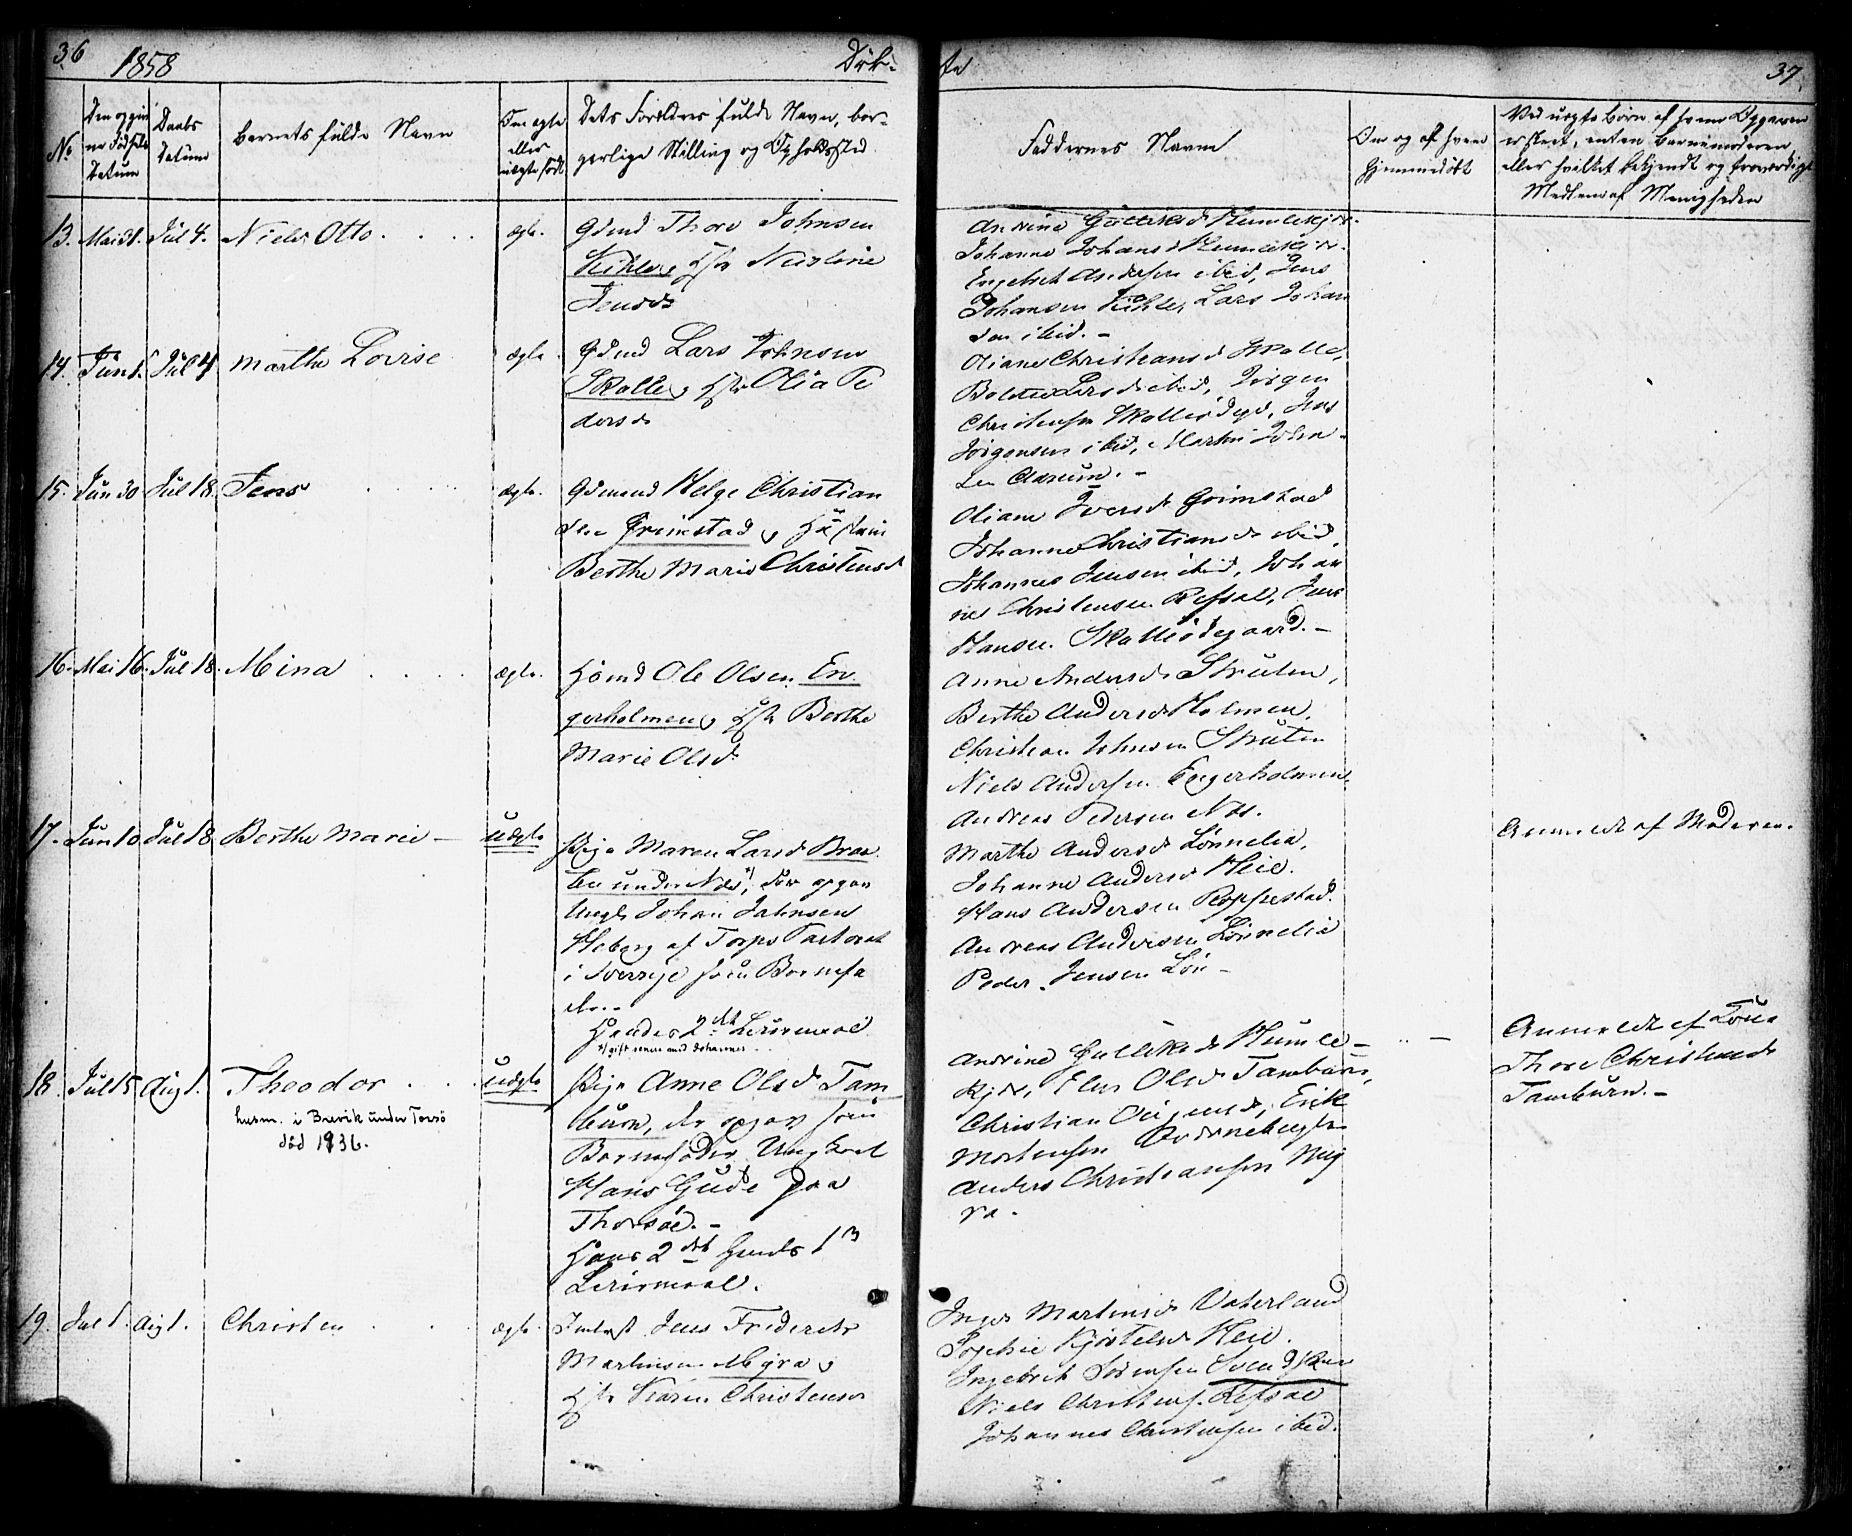 36
1858
Døb-
te
37.
No
Den og
Datum
Daabs
Datum
Barnets fulde Navn
Om ægte
eller
uægte født
Dets Forældres fulde Navn, bor-
gerlige Stilling og Opholdssted
Faddernes Navne
Om og af hvem
hjemmedøbt
Ved uægte Børn af hvem Opgaven
er skeet, enten Barnemoderen
eller hvilket bekjendt og troværdigt
Medlem af Menigheden
13. Mai 31. Jul 4. Niels Otto. ægte.
Gdmd Thore Johnsen
Jensd
Andrine Gulliksd Humlekjær.
Johanne Johansd Humlekjær.
Engebret Andersen ibid, Jens
Johansen Lars Johan
sen ibid. -
14. Jun 1. Jul 4 Marthe Lovise ægte
Gdmd Lars Johnsen
Skolle og Hstr Olia Pe
dersd
Oliane Christiansd Skolle,
Larsd ibid, Jørgen
Christensen Skolleødegd, Jens
Jørgensen ibid, Martin John-
sen Aarum. -
15. Jun 30 Jul 18. Jens ægte.
Gdmand Helge Christian
sen Grimstad og Hustru
Berthe Marie Christensd
Oliane Iversd Grimstad
Johanne Christiansd ibid,
Johannes Jensen ibid, Johan
nes Christensen Refsal, Jens
Hansen Skolleødegaard. -
16. Mai 16. Jul 18. Mina ægte.
Hsmd Ole Olsen En
gerholmen og Hstr Berthe
Marie Olsd.
Anne Andersd Struten,
Berthe Andersd Holmen,
Christian Johnsen Struten
Niels Andersen Engerholmen
Andreas Pedersen Næs.
17. Jun 10 Jul 18 Berthe Marie - uægte
Pige Maren Larsd Braa
ten under Næs, der opgav
Ungk Johan Johnsen
af Torps Pastorat
i Sverrige som Barnefa
der. -
Hendes 2det Leiermaal
gift senere med Johannes
Marthe Andersd Lønnelia,
Johanne Andersd Heie.
Hans Andersen Roppestad.
Andreas Andersen Lønnelia
Peder Jensen Løn -
Anmeldt af Moderen.
18. Jul 15 Aug 1. Theodor uægte
husm. i Brevik under Torsø
død 1936.
Pige Anne Olsd Tam
burn, der opgav som
Barnefader Ungkarl
Hans Gude paa
Thorsøe. -
Hans 2det hendes 1ste
Leiermaal.
Andrine Gulliksd Humle-
kjær, Else Olsd Tamburn,
Christian Erik
Mortensen
Anders Christiansen Myg
ra.
Anmeldt af
Thore Christiansd
Tamburn. -
19. Jul 1. Aug 1. Christen ægte.
Inderst Jens Frederik
Martinsen Mygra og
Hstr Karen Christensd
Inger Martinsd Vaterland
Sophie Kjostelsd Heie.
Ingebret Sørensen
Niels Christens. Refsal
Johannes Christensen ibid.